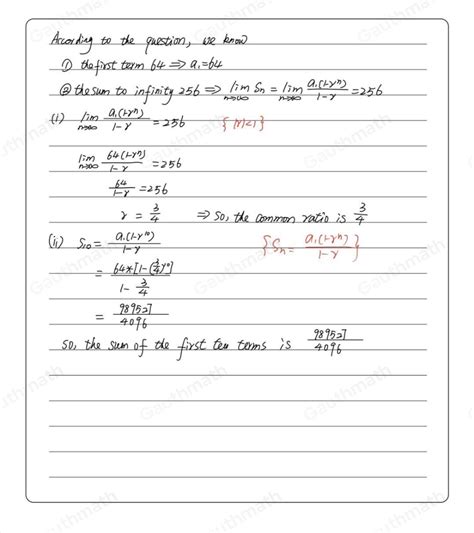 According to the question, we know
① the first term 64 ⇒ a₁=64
② the sum to infinity 256 ⇒ lim n→∞ Sn = lim n→∞ a₁(1-rⁿ)/(1-r) = 256
(i) lim n→∞ a₁(1-rⁿ)/(1-r) = 256 {|r|<1}
lim n→∞ 64(1-rⁿ)/(1-r) = 256
64/(1-r) = 256
r = 3/4 ⇒ So, the common ratio is 3/4
(ii) S₁₀ = a₁(1-r¹⁰)/(1-r) {Sn = a₁(1-rⁿ)/(1-r)}
= 64*[1-(3/4)¹⁰]/(1-3/4)
= 989527/4096
so, the sum of the first ten terms is 989527/4096
Gauthmath